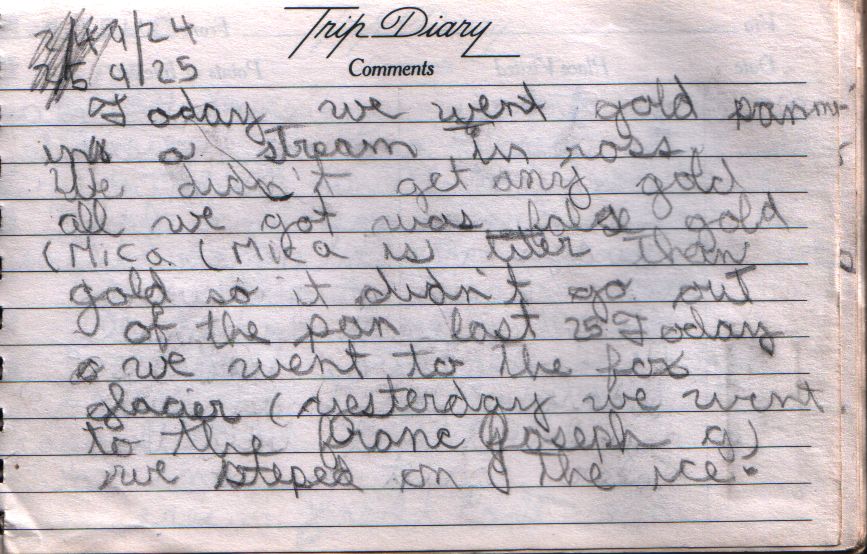 Trip Diary
9/24
9/25
Comments
Today we went gold pann-
in a stream in ross.
We didn't get any gold
all we got was false gold
(Mica (Mica is liter than
gold so it didn't go out
of the pan last 25 Today
we went to the fox
glacier (yesterday we went
to the franc Joseph g)
we steped on the ice.